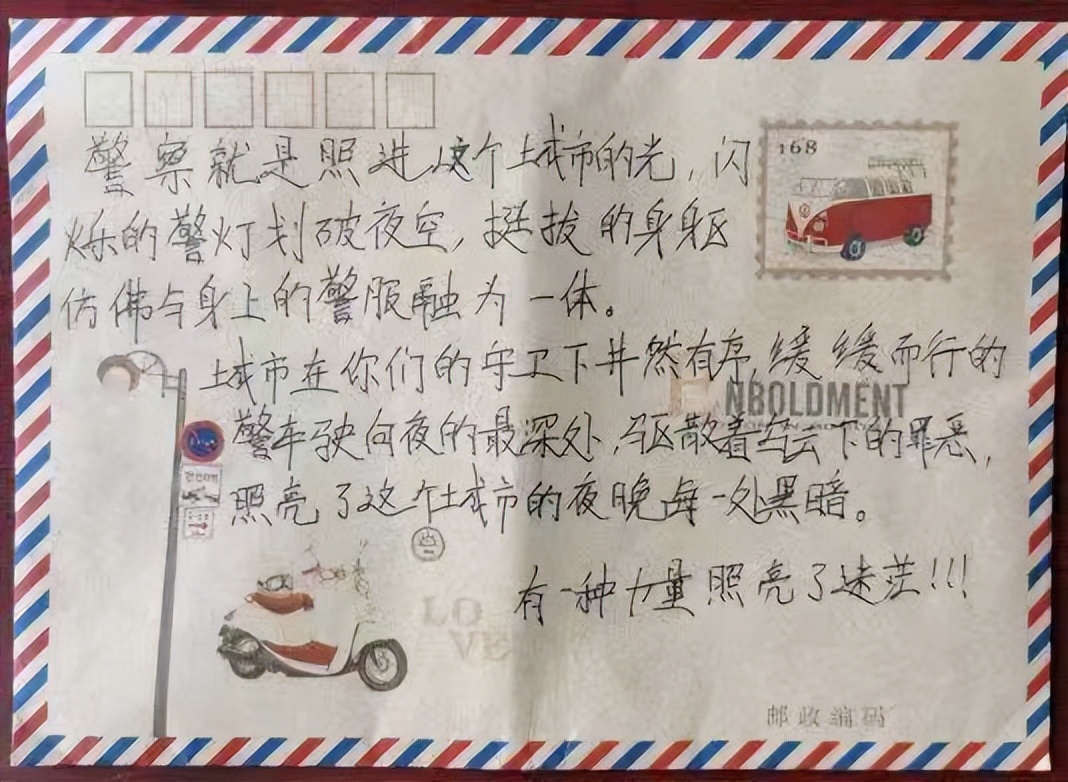 警察就是照进这个城市的光，闪
168
烁的警灯划破夜空，挺拔的身躯
仿佛与身上的警服融为一体。
城市在你们的守卫下井然有序，缓缓而行的
NBOLDMENT
警车驶向夜的最深处，驱散着乌云下的罪恶，
照亮了这个城市的夜晚每一处黑暗。
有一种力量照亮了迷茫！！！
LO
VE
邮政编码